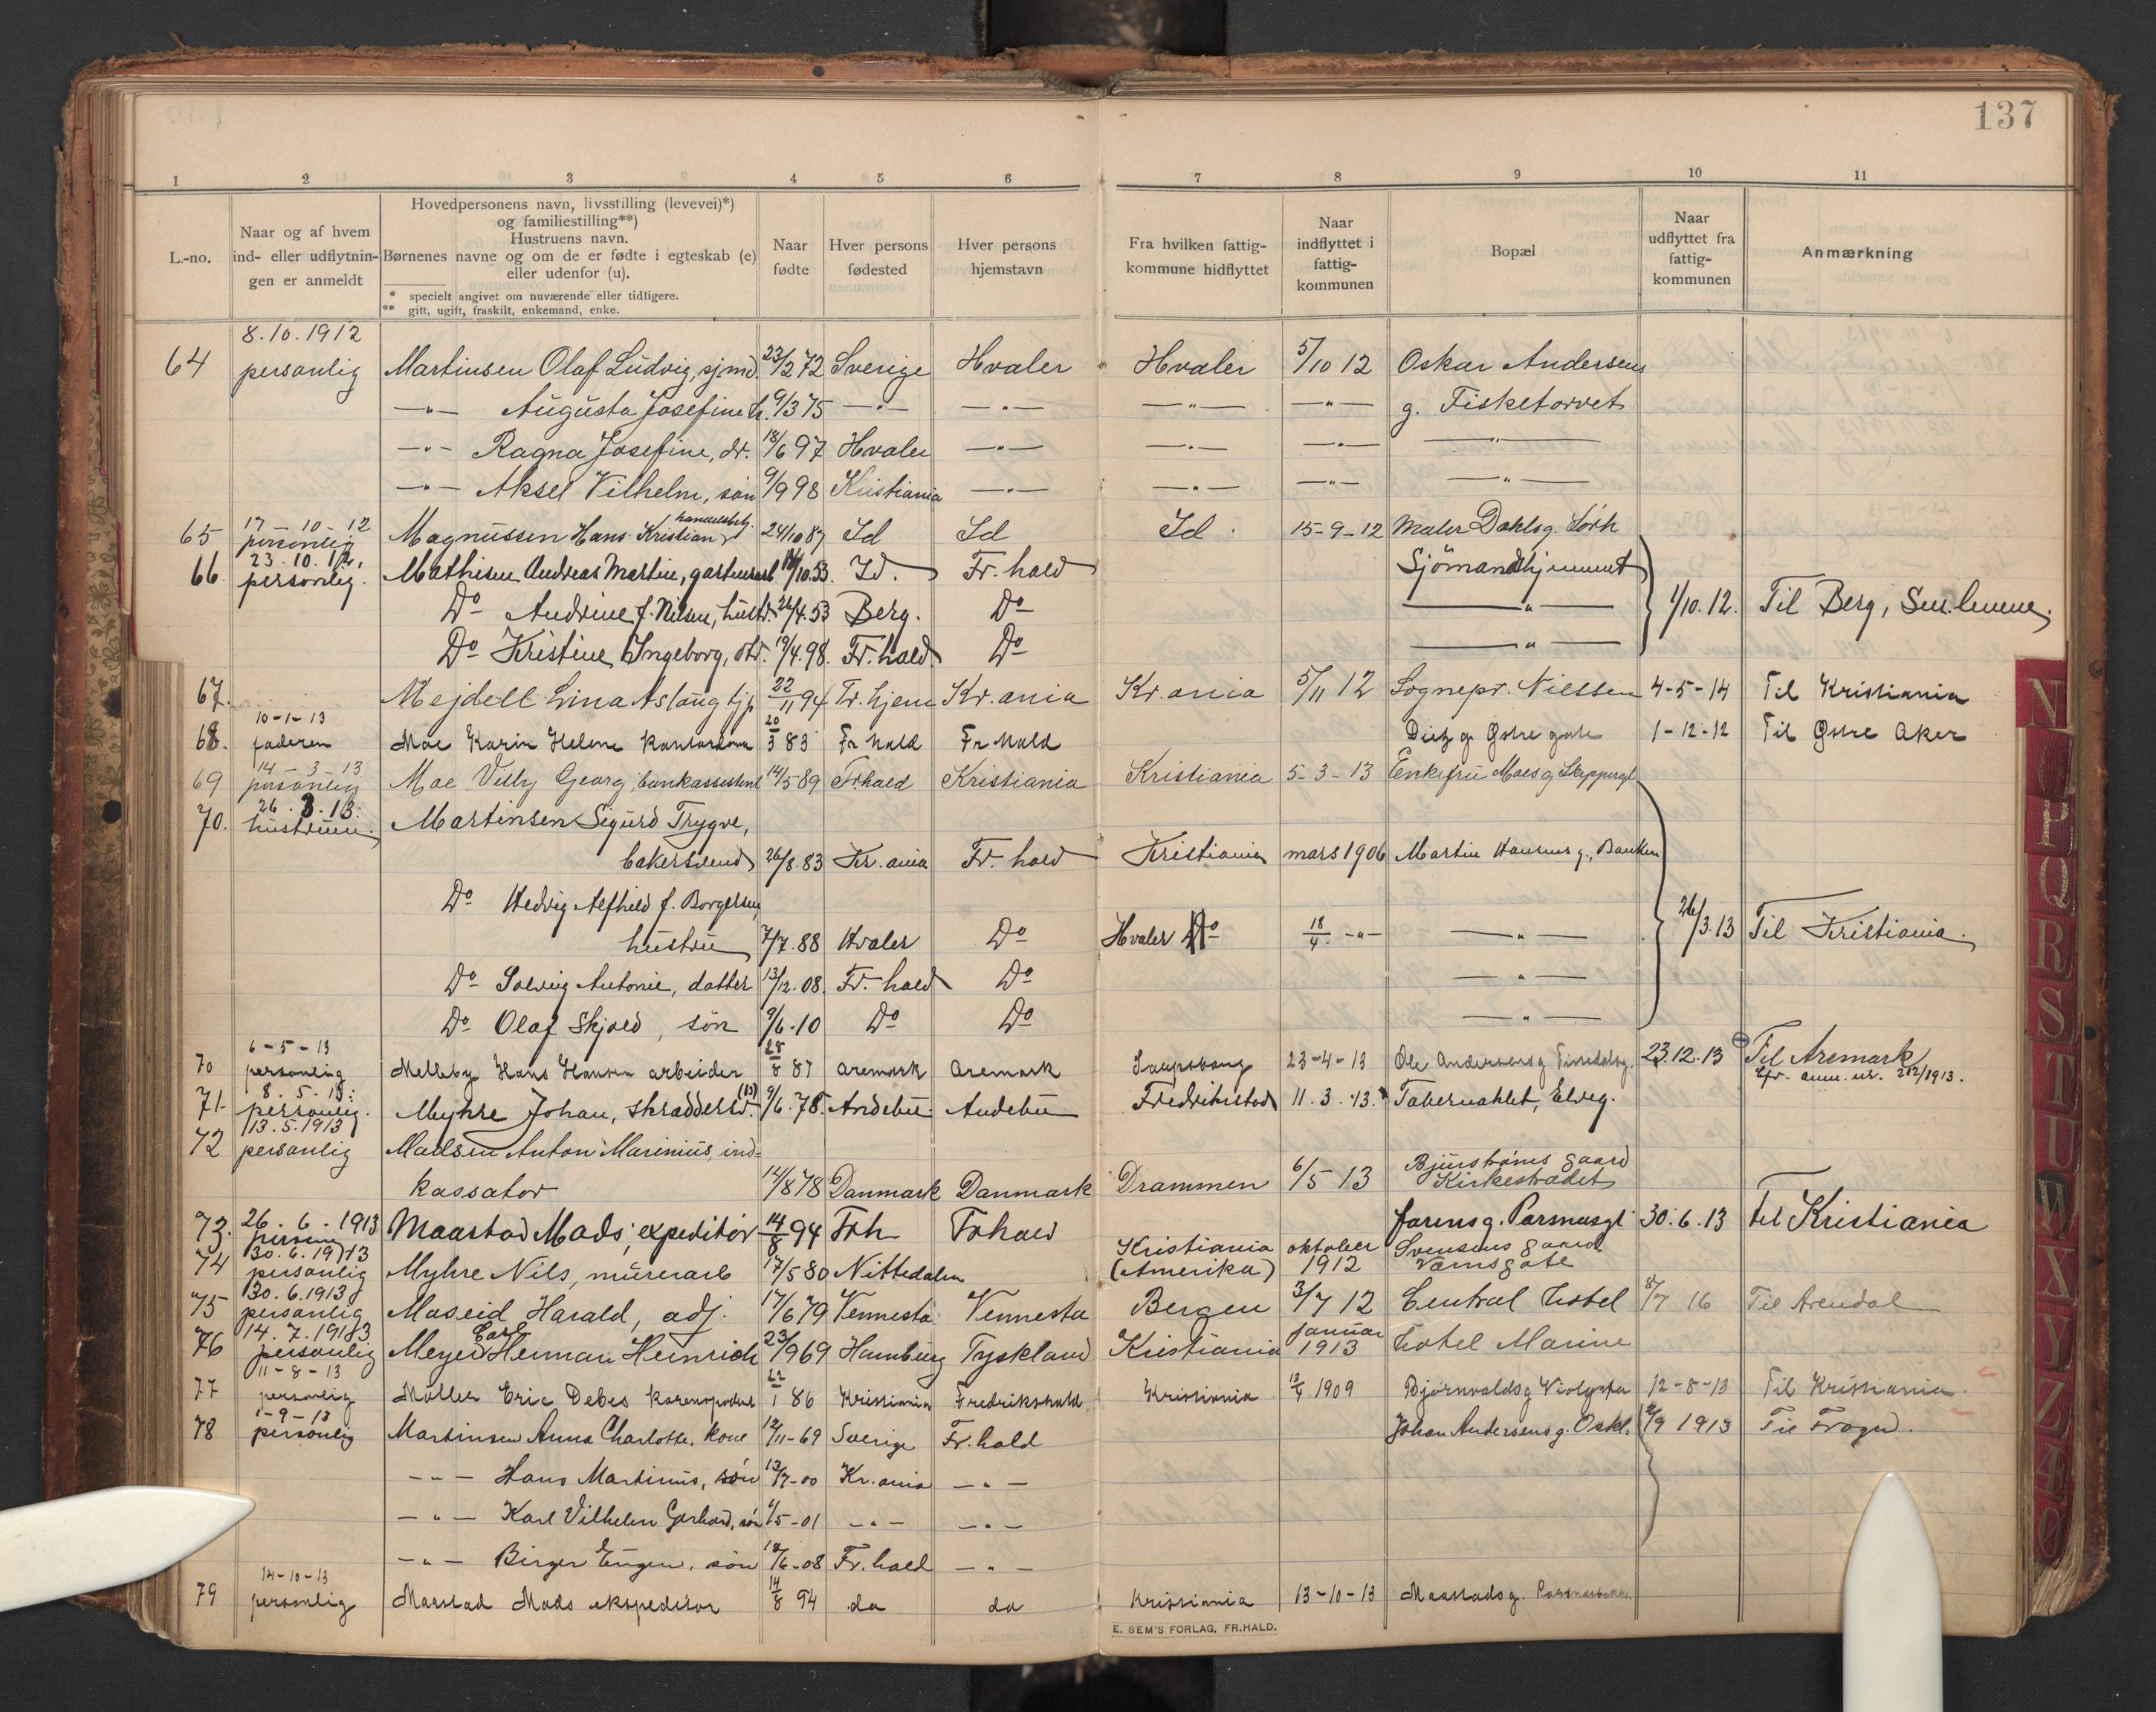 137
1 2 3 4 5 6 7 8 9 10 11
L.-no.
Naar og af hvem
ind- eller udflytnin-
gen er anmeldt
Hovedpersonens navn, livsstilling (levevei)*)
og familiestilling**)
Hustruens navn.
Børnenes navne og om de er fødte i egteskab (e)
eller udenfor (u).
* specielt angivet om nuværende eller tidligere.
** gift, ugift, fraskilt, enkemand, enke.
Naar
fødte
Hver persons
fødested
Hver persons
hjemstavn
Fra hvilken fattig-
kommune hidflyttet
Naar
indflyttet i
fattig-
kommunen
Bopæl
Naar
udflyttet fra
fattig-
kommunen
Anmærkning
8.10.1912
64 personlig Martinsen Olaf Ludvig, sjmd. 23/2 72 Sverige Hvaler Hvaler 5/10 12 Oskar Andersens
—"— Augusta Josefine h. 9/3 75 —"— —"— —"— —"— g. Fisketorvet
—"— Ragna Josefine, dr. 18/6 97 Hvaler —"— —"— —"— —"—
—"— Aksel Vilhelm, søn 9/9 98 Kristiania —"— —"— —"— —"—
17-10-12 handelsbetj.
65 personlig Magnussen Hans Kristian 24/10 87 Id Id Id 15-9-12 Maler Dahlsg.
23.10.12.
66. personlig. Mathisen Andreas Martin, 10.53. Id. Fr.hald Sjömandshjemmet
Do Andrine f. Nilsen, hustr. 26/4.53 Berg. Do —"— 1/10.12. Til Berg,
Do Kristine Ingeborg, dtr. 19/4.98. Fr.hald Do —"—
67. Mejdell Lina Aslaug tjp 22/11 94 Tr.hjem Kr.ania Kr.ania 5/11 12 Sognepr. Nilssen 4-5-14 Til Kristiania
10-1-13
68. faderen Moe Karin Helene kontordame 20/3 83 Fr hald Fr hald Dietz g Østre gate 1-12-12 Til Østre Aker
14-3-13
69 personlig Moe Villy Georg, bankassistent 14/5 89 Fr.hald Kristiania Kristiania 5-3-13 Enkefru Moes g Skippergt
26.3.13:
70. hustruen. Martinsen Sigurd Trygve,
bakersvend 26/8.83 Kr.ania Fr.hald Kristiania mars 1906 Martin Hansens g., Banken
Do Hedvig Alfhild f. Borgersen,
hustru 7/7.88 Hvaler Do Hvaler Do 18/4. —"— —"— 26/3.13 Til Kristiania.
Do Solveig Antonie, datter 13/12.08. Fr.hald Do —"—
Do Olaf Skjold, søn 9/6.10 Do Do —"—
6-5-13
70 personlig Melleby Hans Hansen arbeider 28/8 87 Aremark Aremark Sarpsborg 23-4-13 Ole Andersens g 23.12.13 Til Aremark
Cfr. anm. nr. 212/1913.
8.5.13:
71. personlig. Myhre Johan, skrædders. 9/6.78. Andebu Andebu Fredrikstad 11.3.13. Tabernaklet, Elveg.
13.5.1913
72 personlig Madsen Anton Marinius, ind=
kassator 14/8 78 Danmark Danmark Drammen 6/5 13 Bjurstrøms gaard
Kirkestrædet
26.6-1913
73. Maastad Mads, expeditör 14/8 94 Frh Frhald farens g. 30.6.13 til Kristiania
30.6.1913
74 personlig Myhre Nils, murerarb 17/5 80 Nittedalen Kristiania oktober Svensens gaard
(Amerika) 1912 Værnsgate
30.6.1913
75 personlig Maseid Harald, adj. 17/6 79 Vennesla Vennesla Bergen 3/7 12 Central Hotel 8/7 16 Til Arendal
14.7.1913 Carl
76 personlig Meyer Herman Heinrich 23/9 69 Hamburg Tyskland Kristiania januar 1913 Hotel Marine
11-8-13
77 personlig Møller Eric Debes korrespondent 22/1 86 Kristiania Fredrikshald Kristiania 13/4 1909 Bjørnvalds g 12-8-13 Til Kristiania
1-9-13
78 personlig Martinsen Anna Charlotte, kone 12/11-69 Sverige Fr.hald Johan Andersens g. Oskl. 2/9 1913 Til Frogn.
—"— Hans Martinus, søn 12/7-00 Kr.ania —"—
—"— Karl Vilhelm Gerhard, søn 4/5-01 —"— —"—
—"— Birger Eugen, søn 18/6-08 Fr.hald —"—
14-10-13
79 personlig Maastad Mads ekspeditør 14/8 94 do do Kristiania 13-10-13 Maastads g.
E. SEM'S FORLAG, FR.HALD.
N
P
Q
R
S
T
U
W
X
Y
Z
Æ
Ø